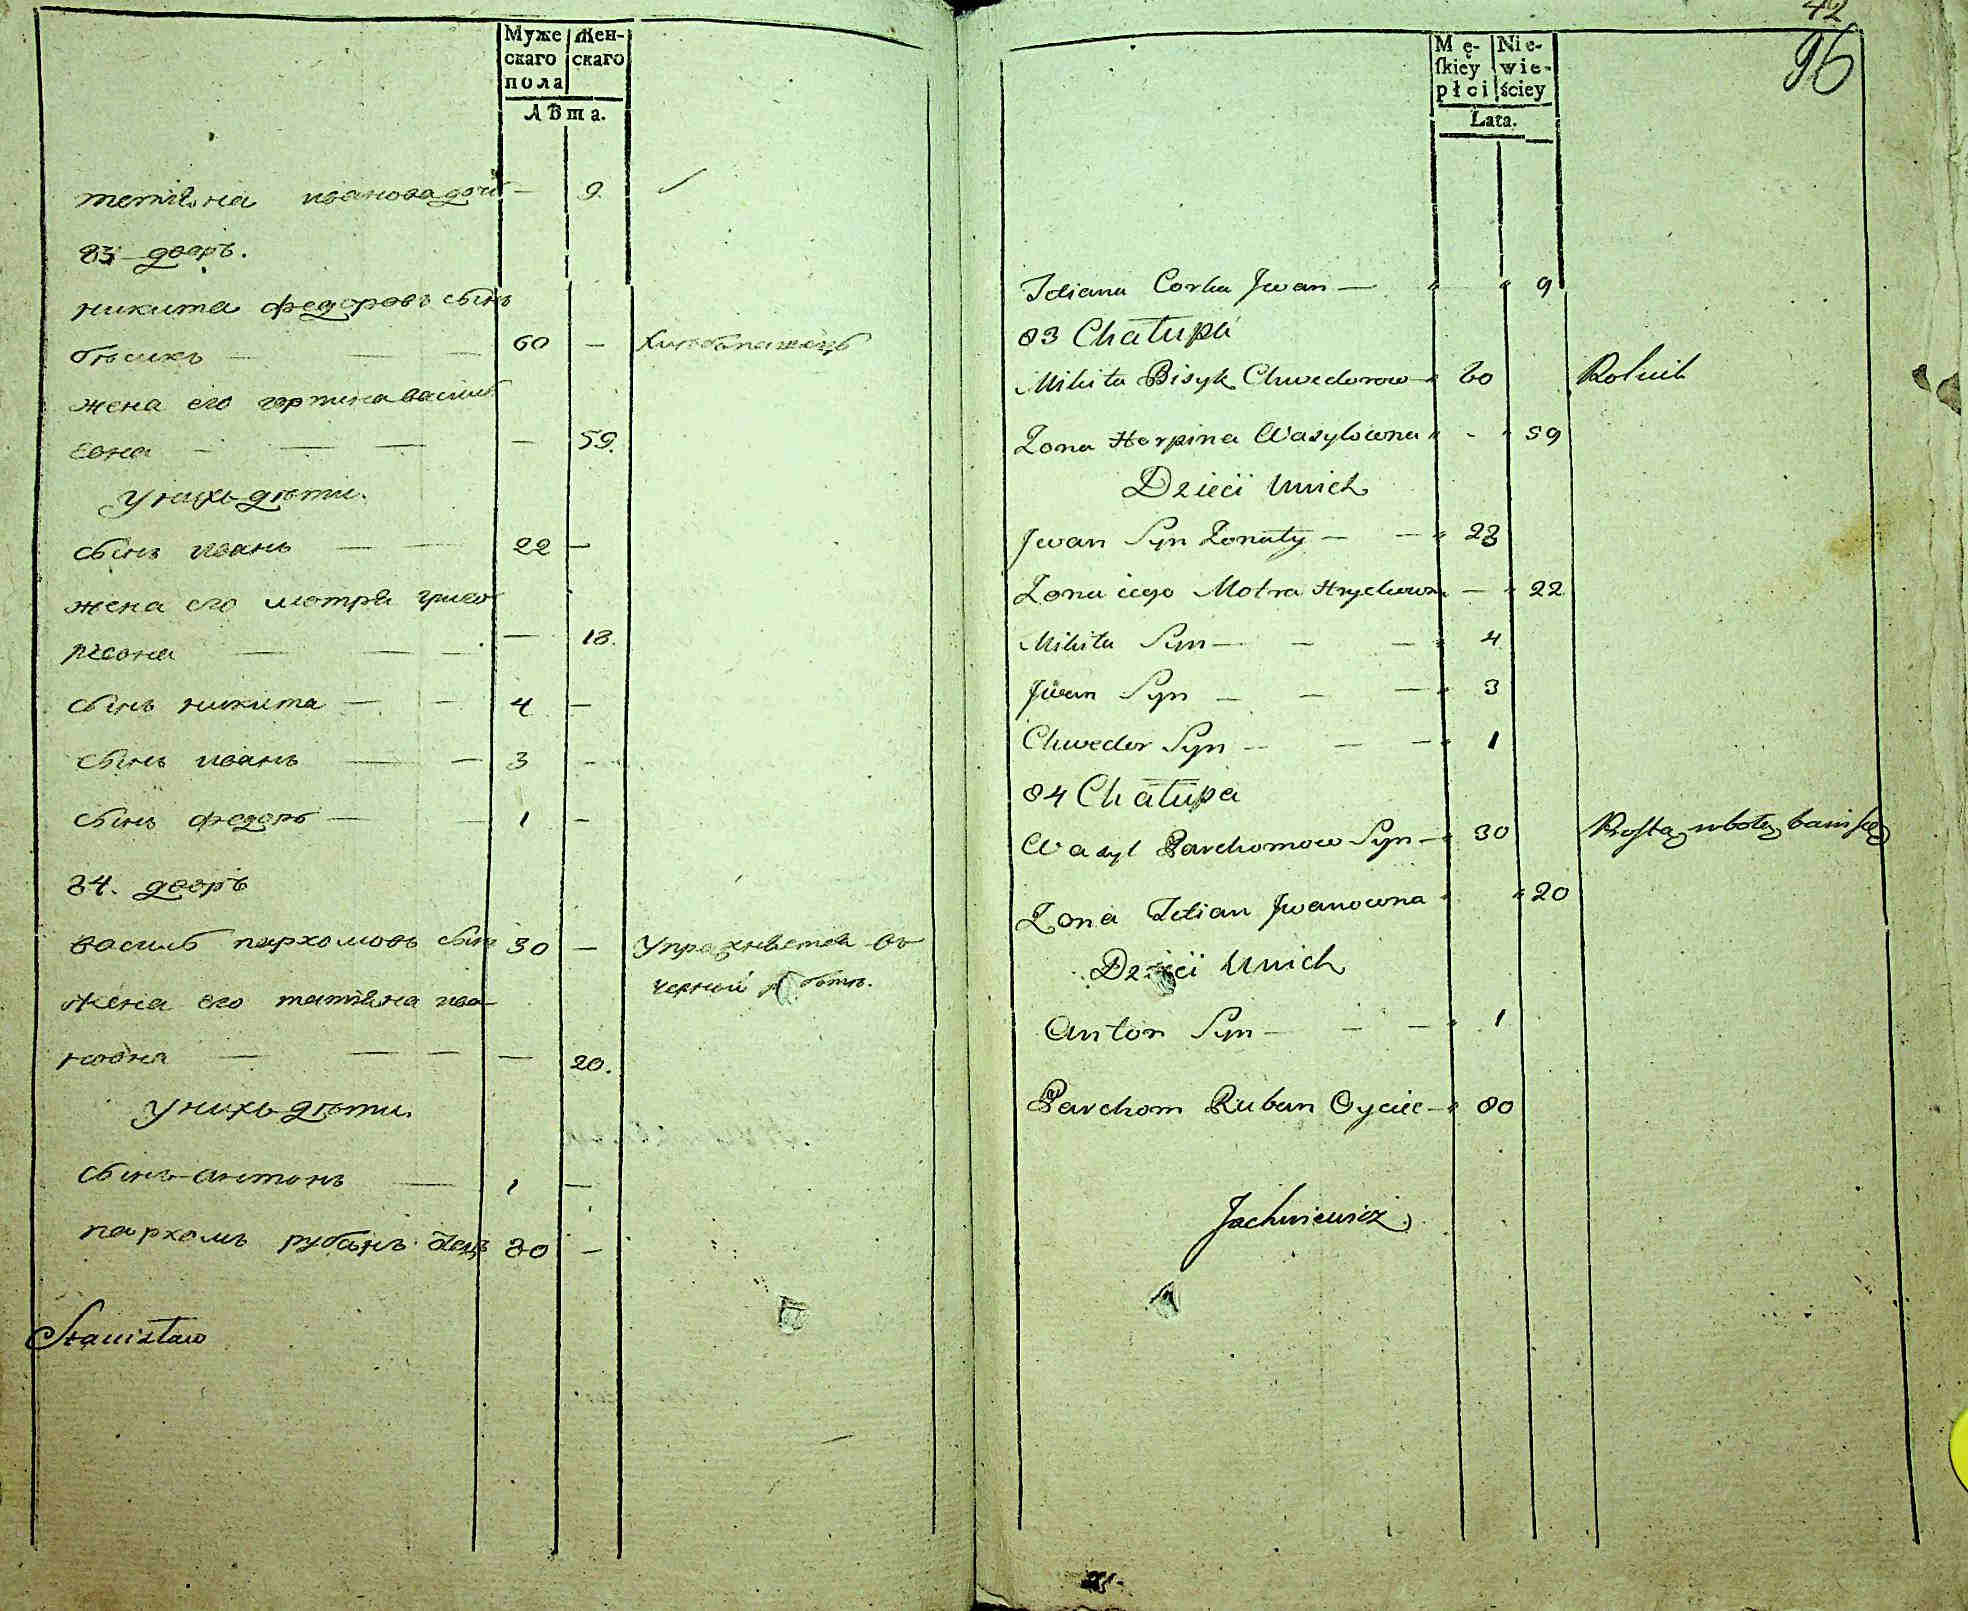 Муже
скаго
пола
Жен-
скаго
Лѣта.
тетіѧна иванова дочь — 9.
83 дворъ.
никита федоровъ сынъ
бѣсикъ — — — 60 — хлебопашецъ
жена его горпина васил
евна — — — — 59.
у нихъ дѣти.
сынъ иванъ — — 22 —
жена его мотря григо
ріевна — — — — 18.
сынъ никита — — 4 —
сынъ иванъ — — 3 —
сынъ федоръ — — 1 —
84. дворъ
василь пархомовъ сынъ 30 — упражняется въ
черной работѣ.
жена его татіѧна ива-
новна — — — — 20.
у нихъ дѣти.
сынъ антонъ — 1 —
пархомъ рубанъ отецъ 80 —
Stanisław
42
96
Mę-
skiey
płci
Nie-
wie-
ściey
Lata.
Tetiana Corka Jwan — 9
83 Chałupa
Mikita Bisyk Chwedorow 60 Rolnik
Żona Horpina Wasylowna - 59
Dzieci Unich
Jwan Syn Żonaty — — 23
Żona iego Motra Hrychorow — 22
Mikita Syn — — — 4
Jwan Syn — — — 3
Chwedor Syn — — — 1
84 Chałupa
Wasyl Parchomow Syn — 30
Żona Tetian Jwanowna 20
Dzieci Unich
Anton Syn — — — 1
Parchom Ruban Oyciec — 80
Jachniewicz